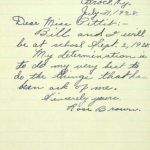 Brock, Ky.
July 21, 1928.
Dear Miss Pettit:-
Bill and I will
be at school Sept. 2, 1928.
My determination is
to do my very best to
do the things that has
been ask of me.
Sincerely yours,
Rosie Brown.